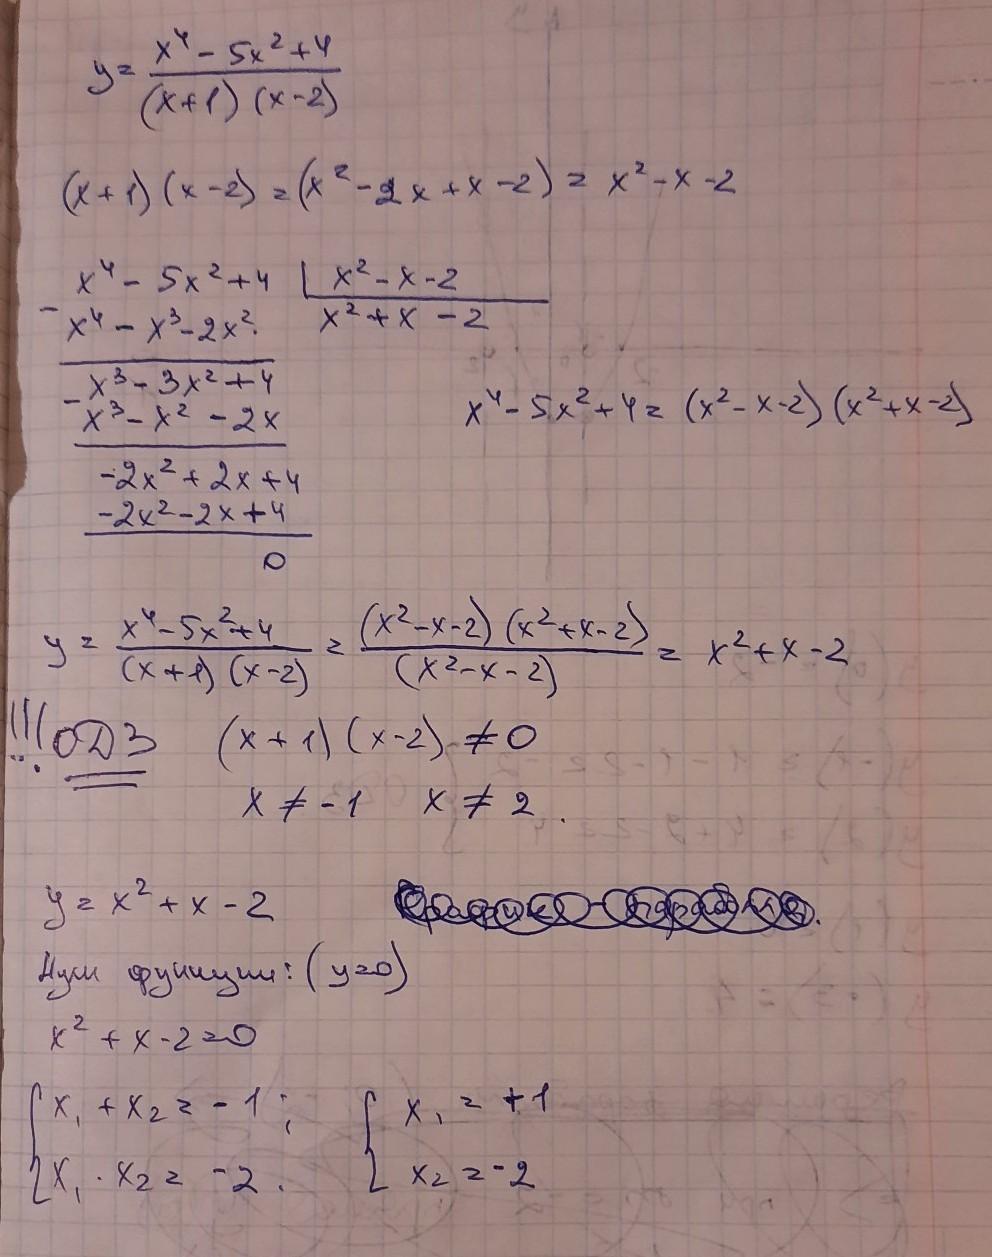 y = (x⁴ - 5x² + 4) / ((x+1) (x-2))
(x+1) (x-2) = (x² - 2x + x - 2) = x² - x - 2
x⁴ - 5x² + 4 | x² - x - 2
- x⁴ - x³ - 2x² | x² + x - 2
x³ - 3x² + 4
- x³ - x² - 2x
x⁴ - 5x² + 4 = (x² - x - 2) (x² + x - 2)
-2x² + 2x + 4
-2x² - 2x + 4
0
y = (x⁴ - 5x² + 4) / ((x+1) (x-2)) = ((x² - x - 2) (x² + x - 2)) / (x² - x - 2) = x² + x - 2
!!! ОДЗ (x+1) (x-2) ≠ 0
x ≠ -1 x ≠ 2.
y = x² + x - 2
Нули функции: (y=0)
x² + x - 2 = 0
{ x₁ + x₂ = -1; { x₁ = +1
{ x₁ · x₂ = -2. { x₂ = -2